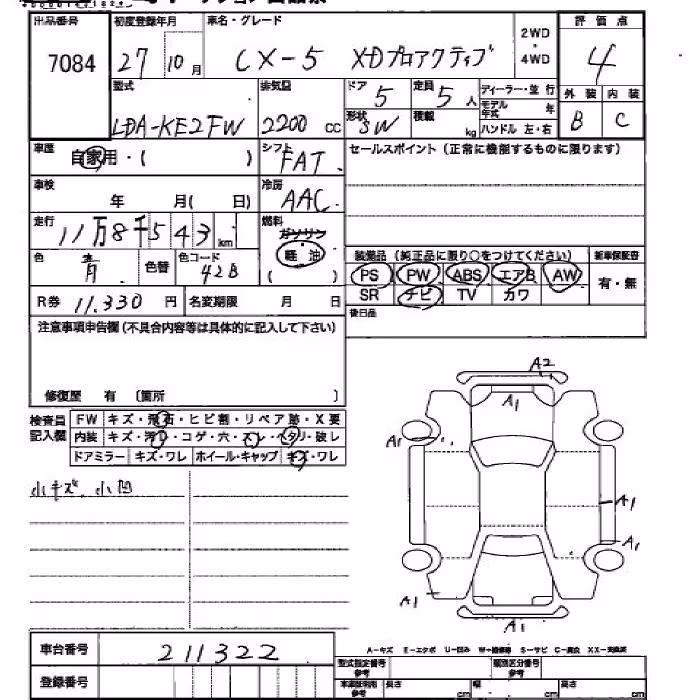 出品番号 初度登録年月 車名・グレード 2WD・4WD 評価点
7084 27年 10月 CX-5 XDプロアクティブ 4
型式 排気量 ドア 定員 ディーラー・並行 外装 内装
LDA-KE2FW 2200 CC 5 5人 モデル年式 年 B C
形状 SW 積載 kg ハンドル 左・右
車歴 自家用・( ) シフト FAT セールスポイント (正常に機能するものに限ります)
車検 年 月( 日) 冷房 AAC
走行 11万8千543km 燃料 ガソリン 軽油 ( )
色 青 色替 色コード 42B
装備品 (純正品に限り○をつけてください) 新車保証書
PS PW ABS エアB AW 有・無
SR ナビ TV カワ
R券 11,330 円 名変期限 月 日
後日品
注意事項申告欄(不具合内容等は具体的に記入して下さい)
修復歴 有 〔箇所 〕
検査員記入欄
FW キズ・飛石・ヒビ割・リペア跡・X要
内装 キズ・汚れ・コゲ・穴・スレ・ヘタリ・破レ
ドアミラー キズ・ワレ ホイール・キャップ キズ・ワレ
小キズ、小凹
A2
A1
A1
A1
A1
A1
A1
A-キズ E-エクボ U-凹み W-補修跡 S-サビ C-腐食 XX-交換済
車台番号 211322
型式指定番号 参考 類別区分番号 参考
登録番号
車庫証明用 参考 長さ cm 幅 cm 高さ cm